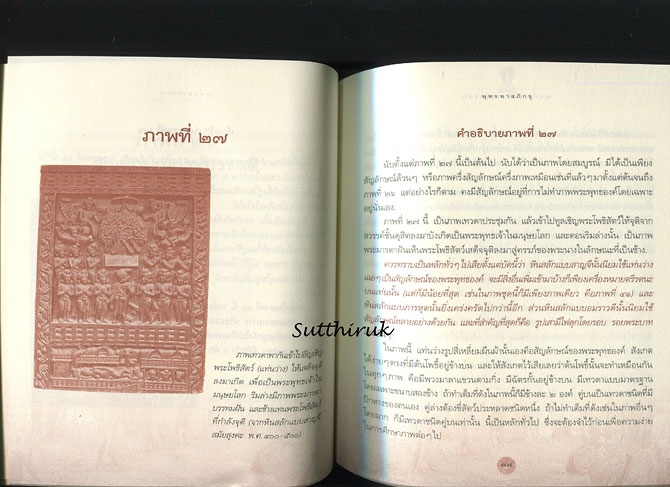 ภาพที่ ๒๗
ภาพเทวดาพากันเข้าไปอัญเชิญ
พระโพธิสัตว์ (แท่นว่าง) ให้เสด็จจุติ
ลงมาเกิด เพื่อเป็นพระพุทธเจ้าใน
มนุษยโลก ริมล่างมีภาพพระมารดา
บรรทมฝัน และช้างแทนพระโพธิสัตว์
ที่กำลังจุติ (จากหินสลักแบบสาญจี
สมัยสุงคะ พ.ศ. ๔๐๐-๕๐๐)
Sutthiruk
พุทธทาสภิกขุ
คำอธิบายภาพที่ ๒๗
นับตั้งแต่ภาพที่ ๒๗ นี้เป็นต้นไป นับได้ว่าเป็นภาพโดยสมบูรณ์ มิได้เป็นเพียง
สัญลักษณ์ล้วนๆ หรือภาพครึ่งสัญลักษณ์ครึ่งภาพเหมือนเช่นที่แล้วๆ มาตั้งแต่ต้นจนถึง
ภาพที่ ๒๖ แต่อย่างไรก็ตาม คงมีสัญลักษณ์อยู่ที่การไม่ทำภาพพระพุทธองค์โดยเฉพาะ
อยู่นั่นเอง
ภาพที่ ๒๗ นี้ เป็นภาพเทวดาประชุมกัน แล้วเข้าไปทูลเชิญพระโพธิสัตว์ให้จุติจาก
สวรรค์ชั้นดุสิตลงมาบังเกิดเป็นพระพุทธเจ้าในมนุษยโลก และตอนริมล่างนั้น เป็นภาพ
พระมารดาฝันเห็นพระโพธิสัตว์เสด็จจุติลงมาสู่ครรภ์ของพระนางในลักษณะที่เป็นช้าง
ควรทราบเป็นหลักทั่วๆ ไปเสียตั้งแต่บัดนี้ว่า หินสลักแบบสาญจีนั้นนิยมใช้แท่นว่าง
เฉยๆ เป็นสัญลักษณ์ของพระพุทธองค์ จะมีสิ่งอื่นเพิ่มเข้ามาบ้างก็เพียงเครื่องหมายตรีรตนะ
บนแท่นนั้น (แต่ก็มีน้อยที่สุด เช่นในภาพชุดนี้ก็มีเพียงภาพเดียว คือภาพที่ ๔๑) และ
หินสลักแบบภารหุตนั้นยิ่งเคร่งครัดไปกว่านี้อีก ส่วนหินสลักแบบอมราวดีนั้นนิยมใช้
สัญลักษณ์หลายอย่างด้วยกัน และที่สำคัญที่สุดก็คือ รูปเสามีไฟลุกโดยรอบ รอยพระบาท
ในภาพนี้ แท่นว่างรูปสี่เหลี่ยมผืนผ้านั้นเองคือสัญลักษณ์ของพระพุทธองค์ สังเกต
ได้ง่ายๆ ตรงที่มีต้นโพธิ์อยู่ข้างบน และให้สังเกตไว้เสียเลยว่าต้นโพธิ์นั้นจะทำเหมือนกัน
ในทุกๆ ภาพ คือมีพวงมาลาแขวนตามกิ่ง มีฉัตรกั้นอยู่ข้างบน มีเทวดาแบบมาตรฐาน
โดยเฉพาะขนาบสองข้าง ถ้าทำเต็มที่ดังในภาพนี้ก็มีข้างละ ๒ องค์ คู่บนเป็นเทวดาชนิดที่มี
ปีกหางของตนเอง คู่ล่างต้องขี่สัตว์ประหลาดชนิดหนึ่ง ถ้าไม่ทำเต็มที่ดังเช่นในภาพอื่นๆ
โดยมาก ก็มีเทวดาชนิดคู่บนเท่านั้น นี้เป็นหลักทั่วไป ซึ่งจะต้องจำไว้ก่อนเพื่อความง่าย
ในการศึกษาภาพต่อๆ ไป